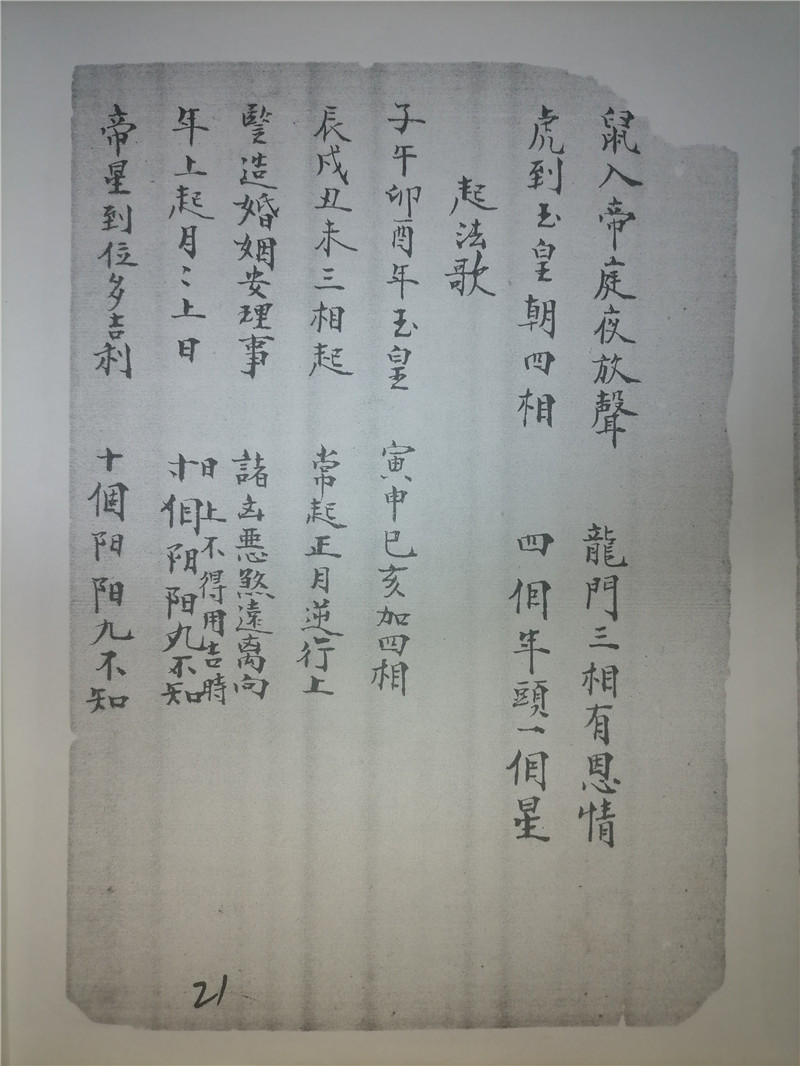 鼠入帝庭夜放聲　龍門三相有恩情
虎到玉皇朝四相　四個年頭一個星
起法歌
子午卯酉年玉皇　寅申巳亥加四相
辰戌丑未三相起　常起正月逆行上
豎造婚姻安理事　諸凶惡煞遠离向
年上起月〻上日　日上不得用吉時
十個阴阳九不知
帝星到位多吉利　十個阳阳九不知
21